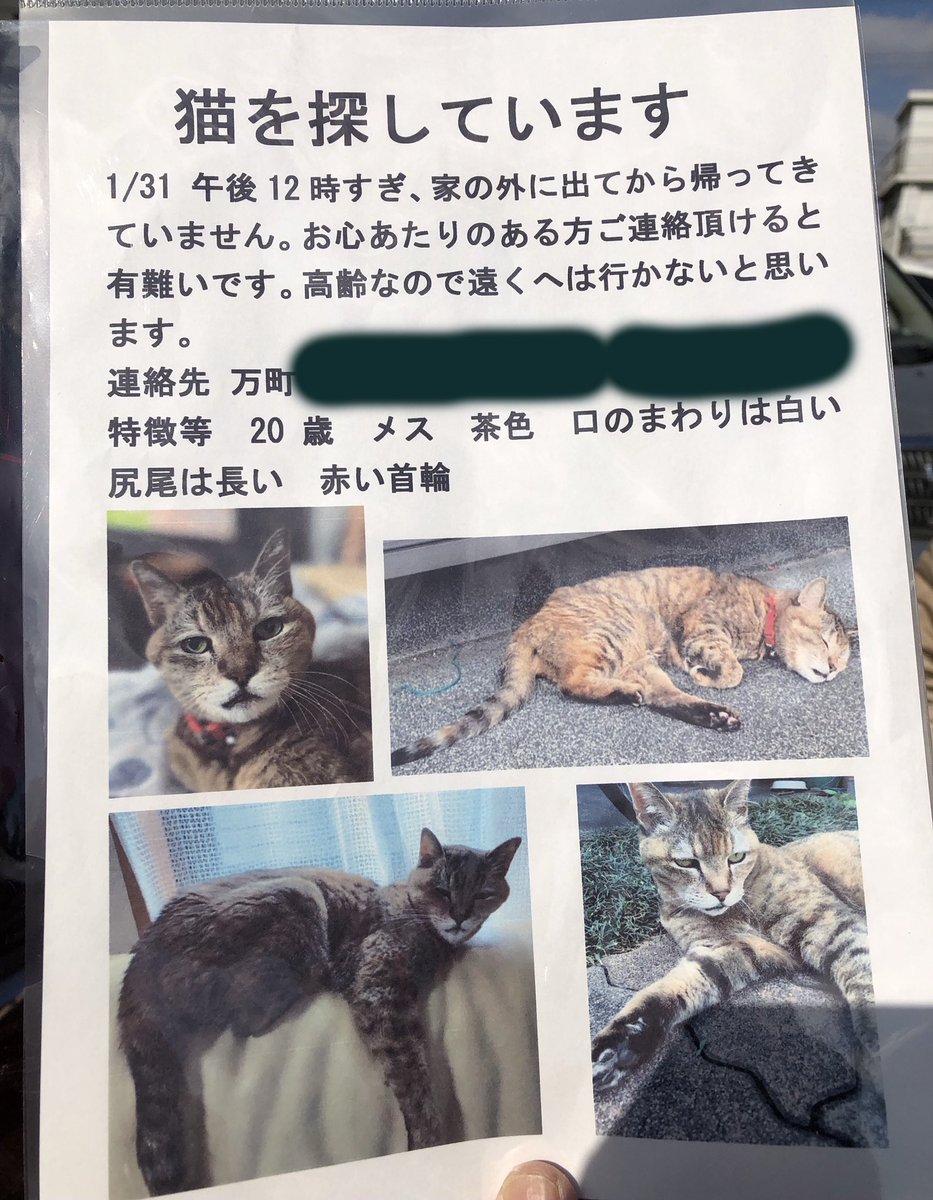 猫を探しています
1/31 午後12時すぎ、家の外に出てから帰ってき
ていません。お心あたりのある方ご連絡頂けると
有難いです。高齢なので遠くへは行かないと思い
ます。
連絡先 万町
特徴等 20歳 メス 茶色 口のまわりは白い
尻尾は長い 赤い首輪